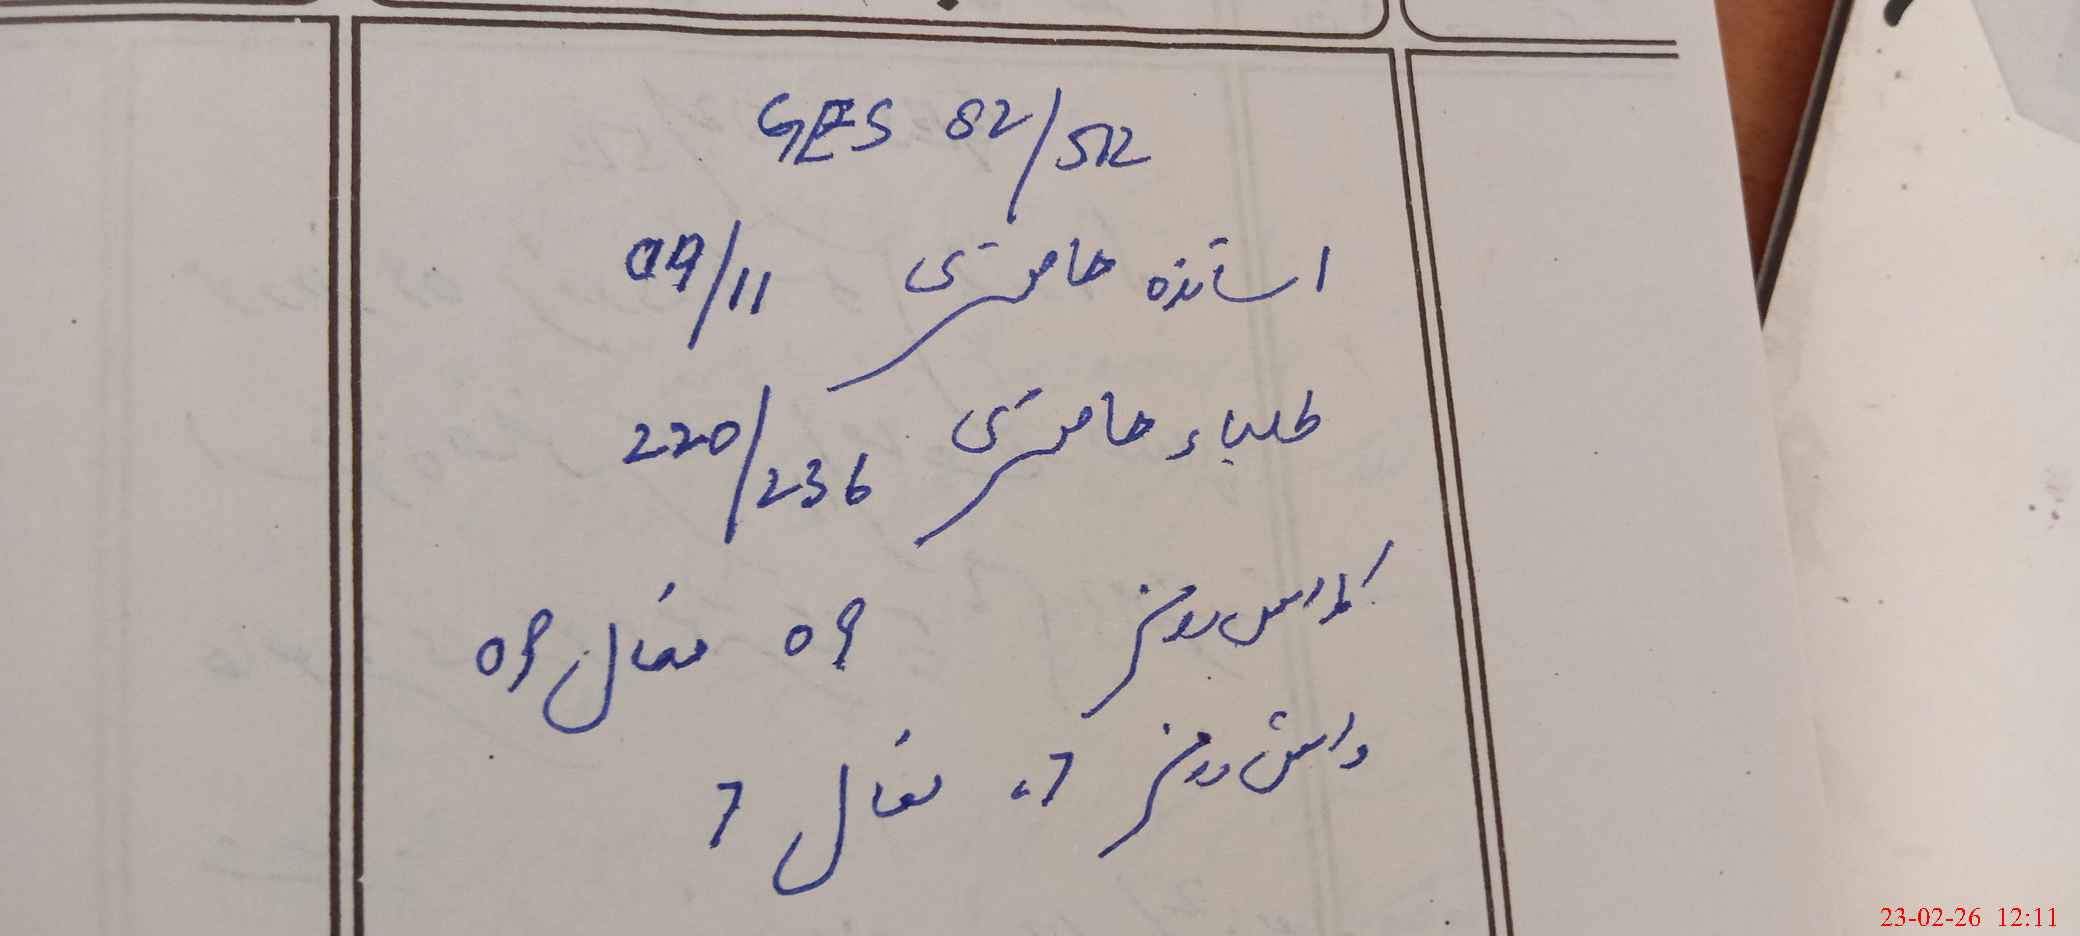 GES 82/5R
اساتذہ حاضری 09/11
طلباء حاضری 220/236
کلاس رومز 09 فعال 09
واش رومز 7، فعال 7
23-02-26 12:11